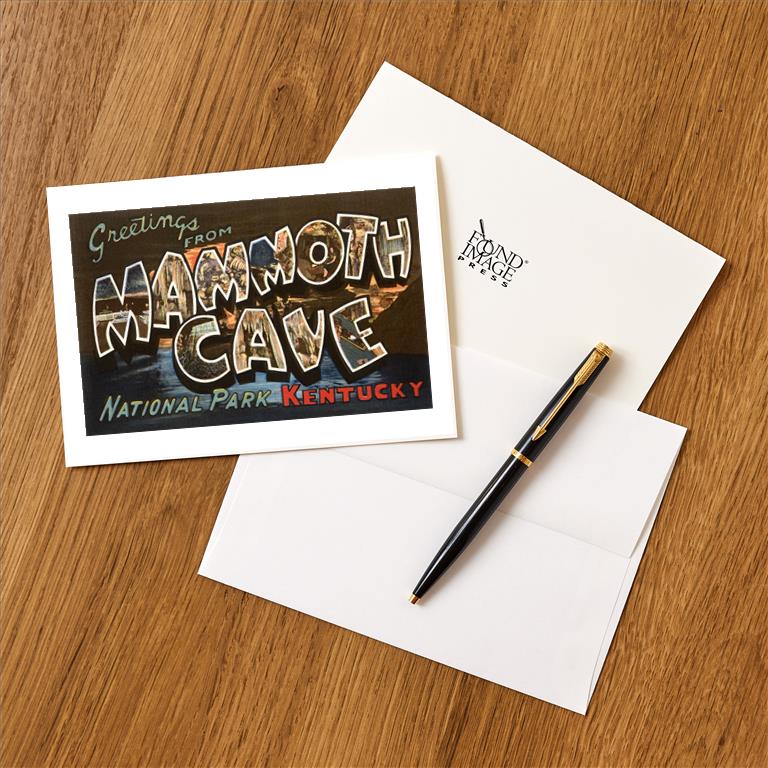 Greetings
FROM
MAMMOTH
CAVE
NATIONAL PARK KENTUCKY
FOUND
IMAGE®
PRESS